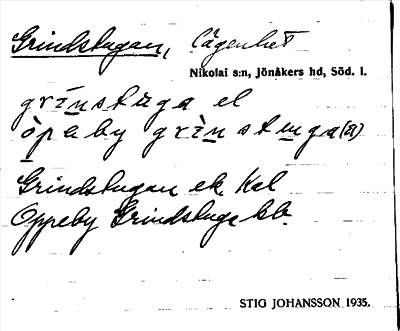 Grindstugan, lägenhet
Nikolai s:n, Jönåkers hd, Söd. l.
grínstùga el
òpəby grìnstuga(n)
Grindstugan ek. Kal
Oppeby Grindstuga bb.
STIG JOHANSSON 1935.